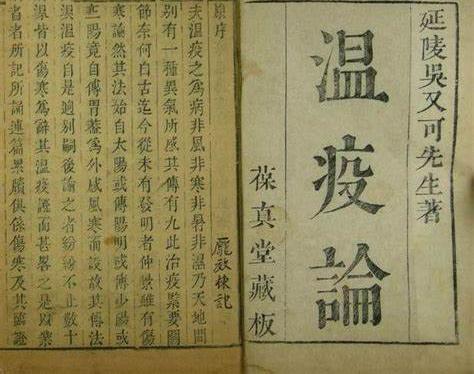 延陵吳又可先生著
温疫論
葆真堂藏板
原序
夫温疫之為病非風非寒非暑非濕乃天地間
別有一種異氣所感其傳有九此治疫緊要關
節奈何自古迄今從未有發明者仲景雖有傷
寒論然其法始自太陽或傳陽明或傳少陽或
三陽竟自傳胃蓋為外感風寒而設故其傳法
與温疫自是逈別嗣後論之者紛紛不止數十
家皆以傷寒為辭其温疫證而甚畧之是以業
醫者所記所誦連篇累牘俱係傷寒及其臨證